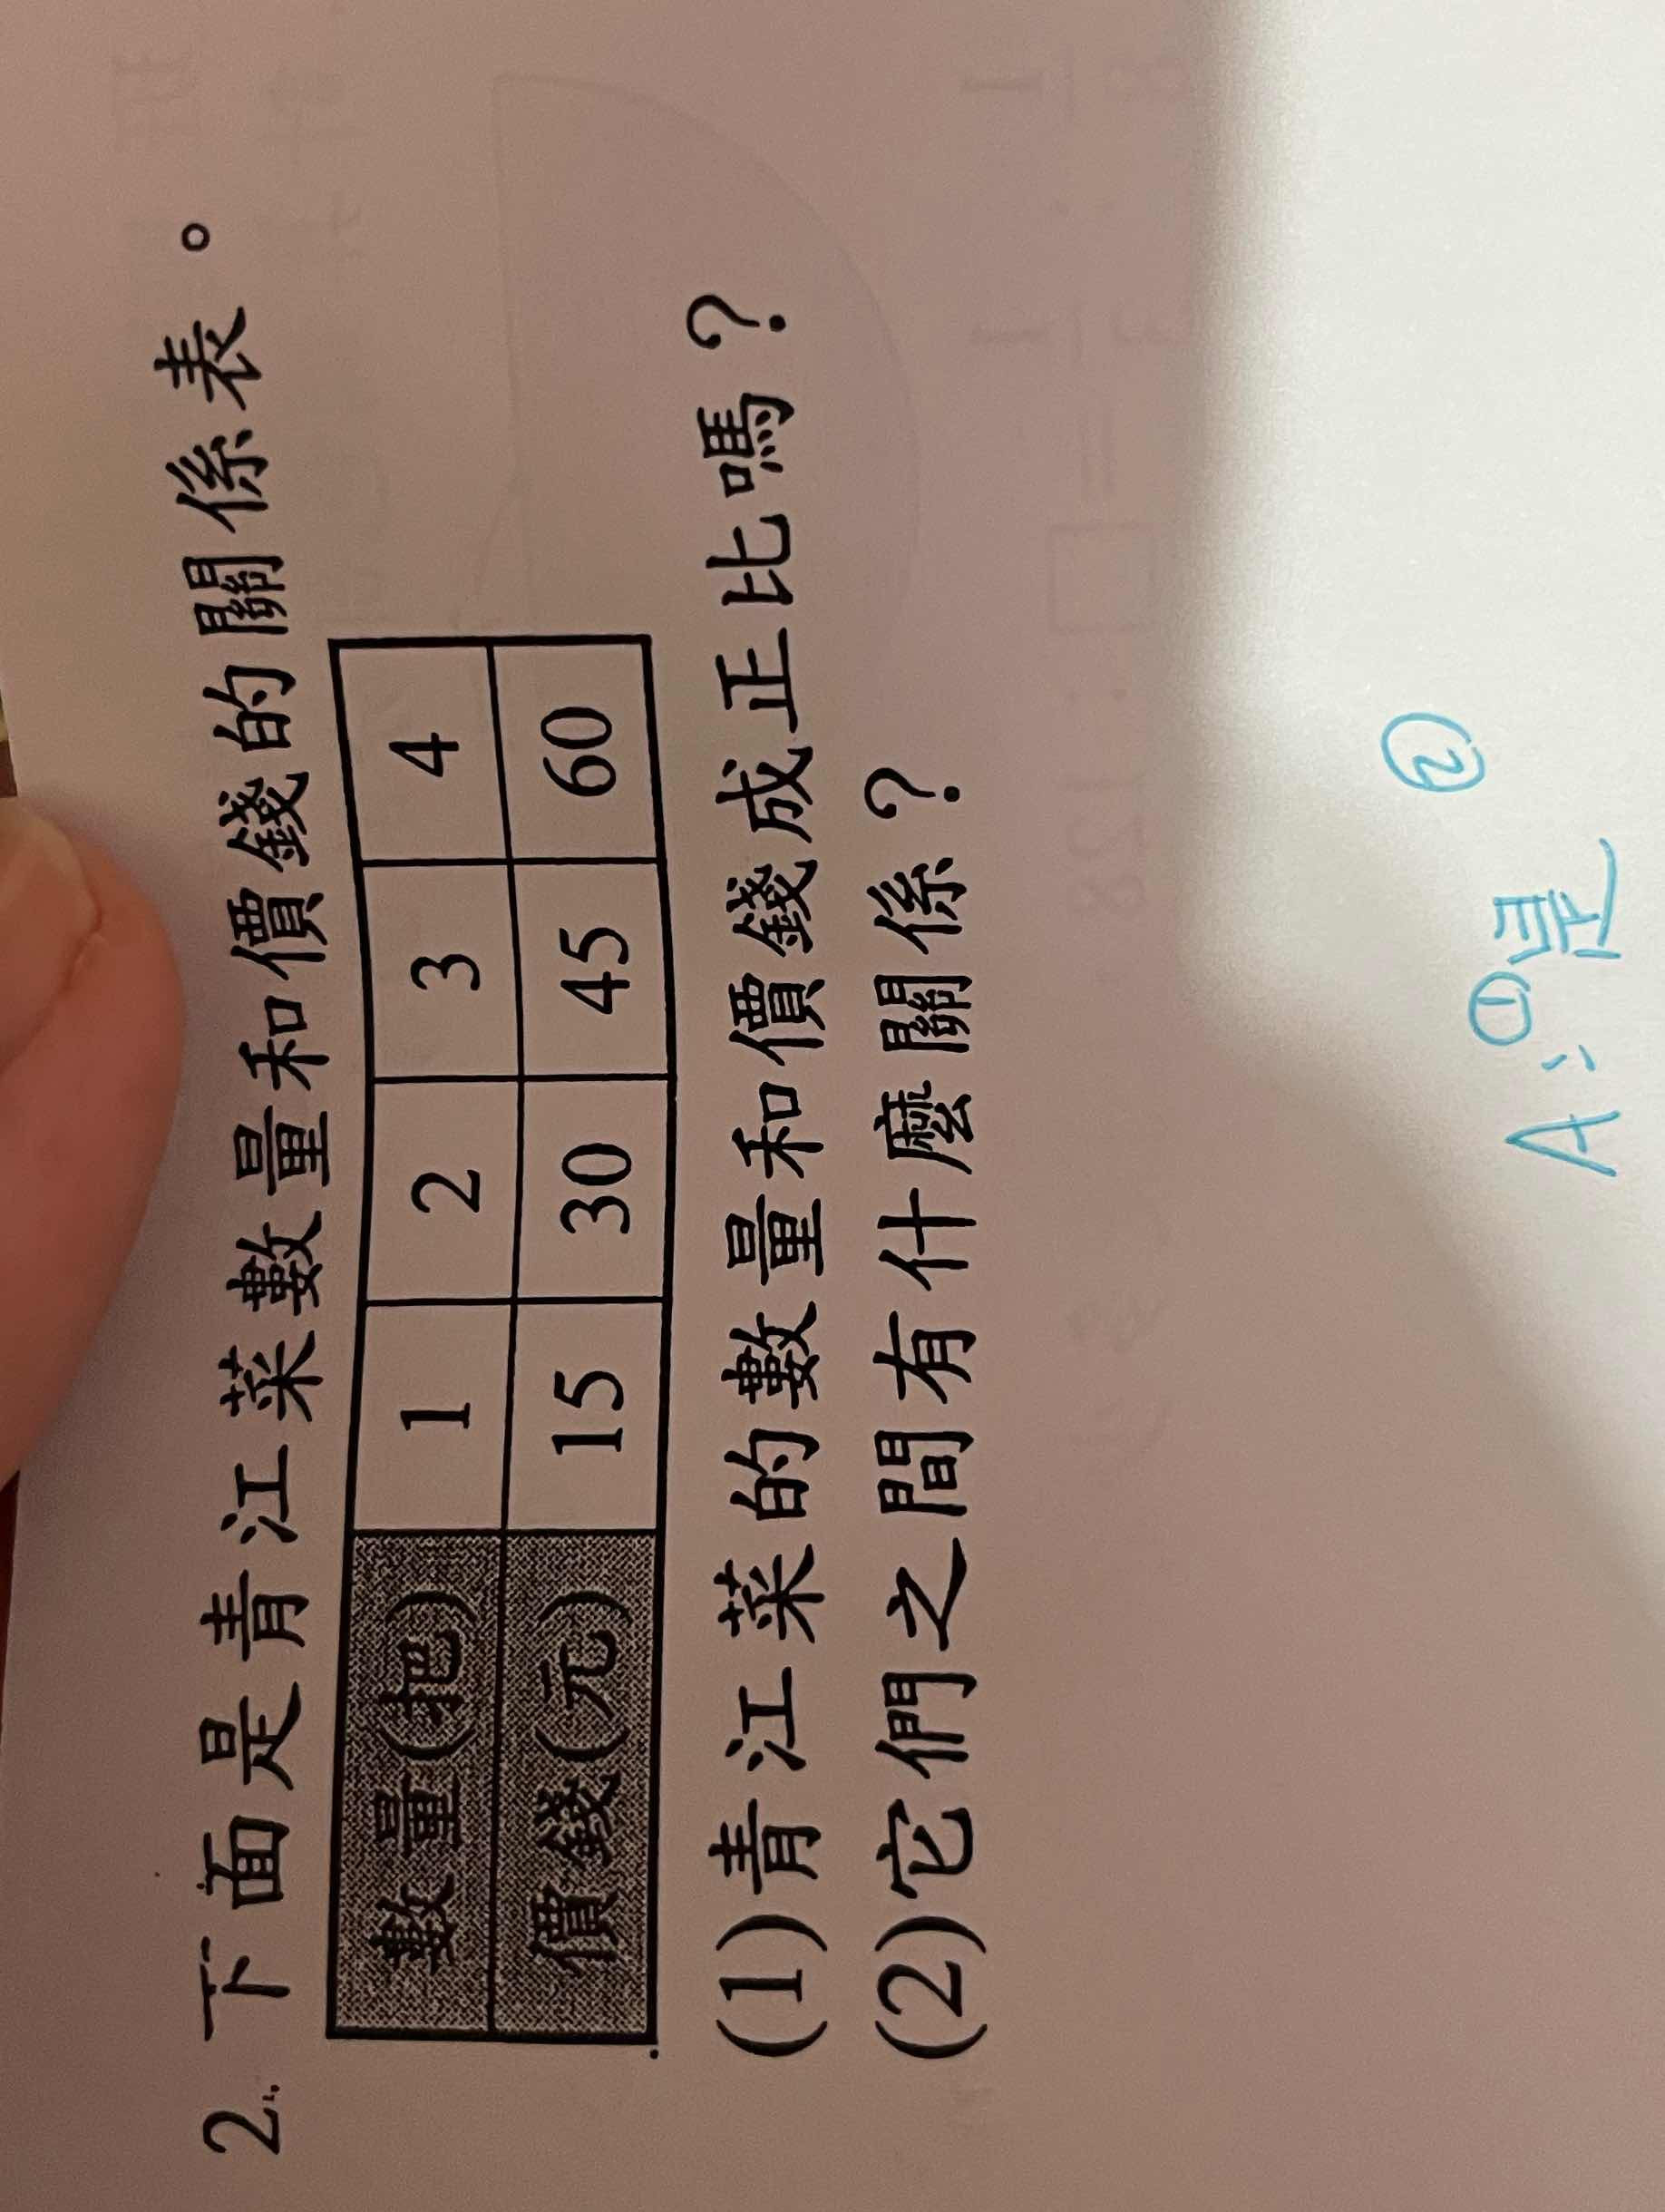 2. 下面是青江菜數量和價錢的關係表。
數量(把) 1 2 3 4
價錢(元) 15 30 45 60
(1)青江菜的數量和價錢成正比嗎？
(2)它們之間有什麼關係？
A：①是 ②